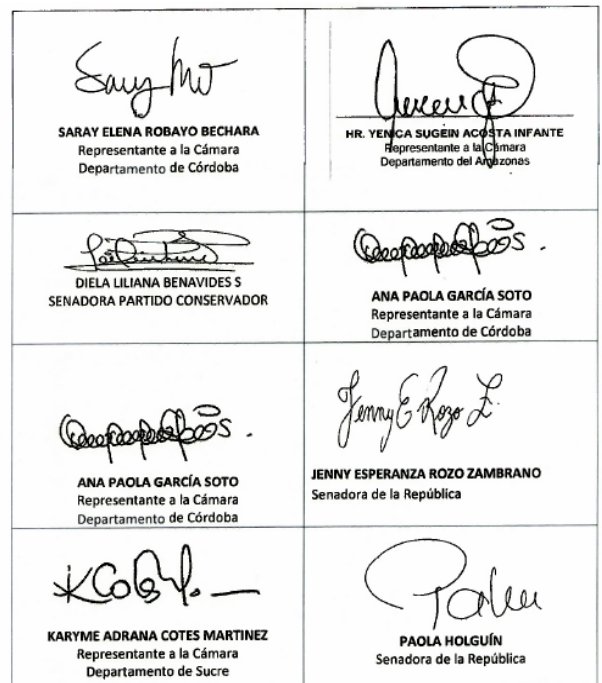 SARAY ELENA ROBAYO BECHARA
Representante a la Cámara
Departamento de Córdoba
HR. YENICA SUGEIN ACOSTA INFANTE
Representante a la Cámara
Departamento del Amazonas
DIELA LILIANA BENAVIDES S
SENADORA PARTIDO CONSERVADOR
ANA PAOLA GARCÍA SOTO
Representante a la Cámara
Departamento de Córdoba
ANA PAOLA GARCÍA SOTO
Representante a la Cámara
Departamento de Córdoba
Jenny E Rozo Z.
JENNY ESPERANZA ROZO ZAMBRANO
Senadora de la República
KARYME ADRANA COTES MARTINEZ
Representante a la Cámara
Departamento de Sucre
PAOLA HOLGUÍN
Senadora de la República